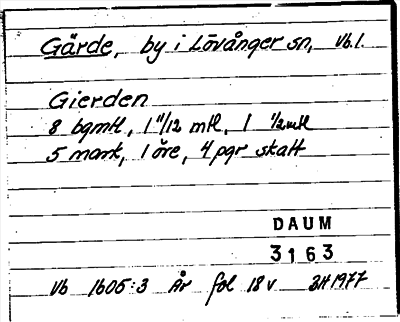 Gärde, by i Lövånger sn, Vb.l.
Gierden
8 bgmtl, 1 11/12 mtl, 1 1/2 mtl
5 mark, 1 öre, 4 pgr skatt
DAUM
3163
Vb 1605:3 År fol 18 v 3H 1977